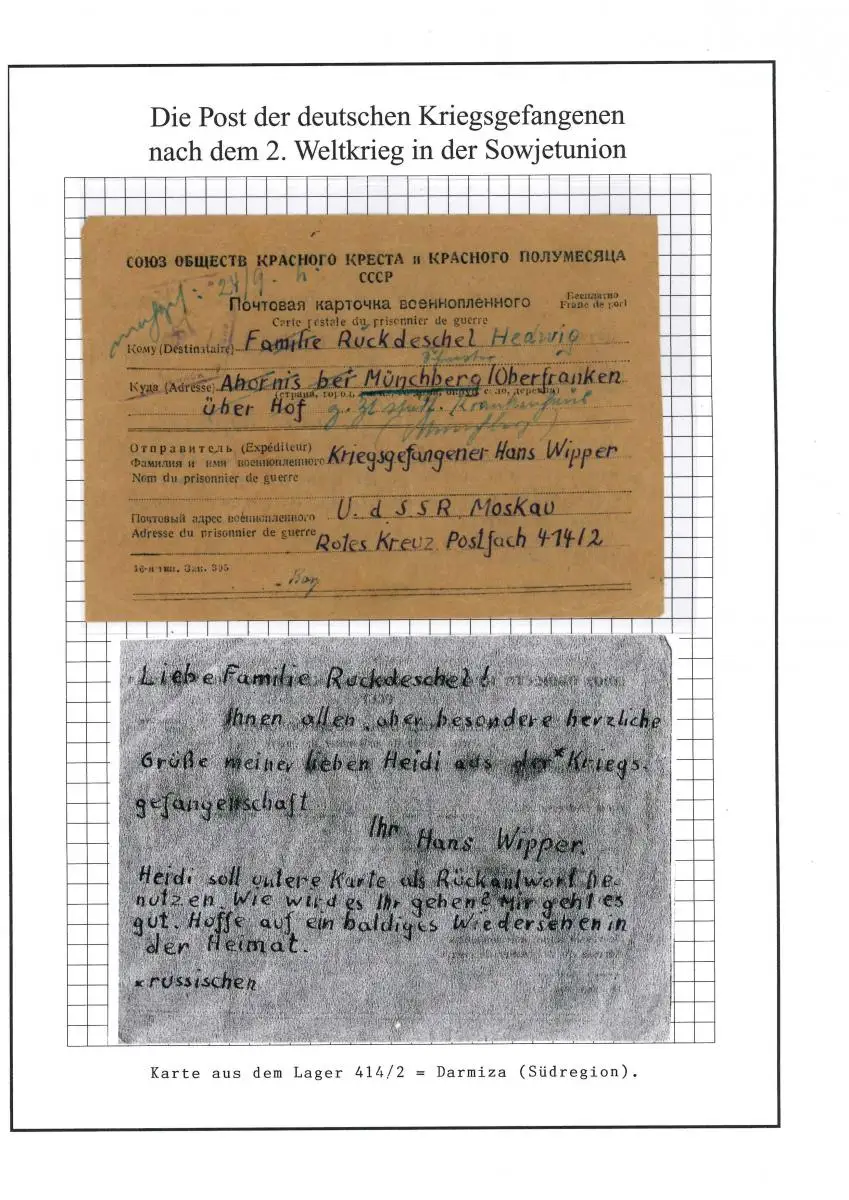 Die Post der deutschen Kriegsgefangenen
nach dem 2. Weltkrieg in der Sowjetunion
СОЮЗ ОБЩЕСТВ КРАСНОГО КРЕСТА и КРАСНОГО ПОЛУМЕСЯЦА
СССР
24/9.
Почтовая карточка военнопленного
Бесплатно
Franc de port
Carte postale du prisonnier de guerre
Кому (Destinataire) Familie Rückdeschel Hedwig
Куда (Adresse) Ahornis bei Münchberg /Oberfranken
(страна, город, село, деревня)
über Hof z. Zt. Krankenhaus
Отправитель (Expéditeur)
Фамилия и имя военнопленного Kriegsgefangener Hans Wipper
Nom du prisonnier de guerre
Почтовый адрес военнопленного U. d S S R, Moskau
Adresse du prisonnier de guerre Rotes Kreuz, Postfach 414/2
16-я тип. Зак. 395
Liebe Familie Rückdeschel!
Ihnen allen, aber besondere herzliche
Grüße meiner lieben Heidi aus der * Kriegs-
gefangenschaft
Ihr Hans Wipper.
Heidi soll untere Karte als Rückantwort be-
nutzen. Wie wird es Ihr gehen? Mir geht es
gut. Hoffe auf ein baldiges Wiedersehen in
der Heimat.
*russischen
Karte aus dem Lager 414/2 = Darmiza (Südregion).